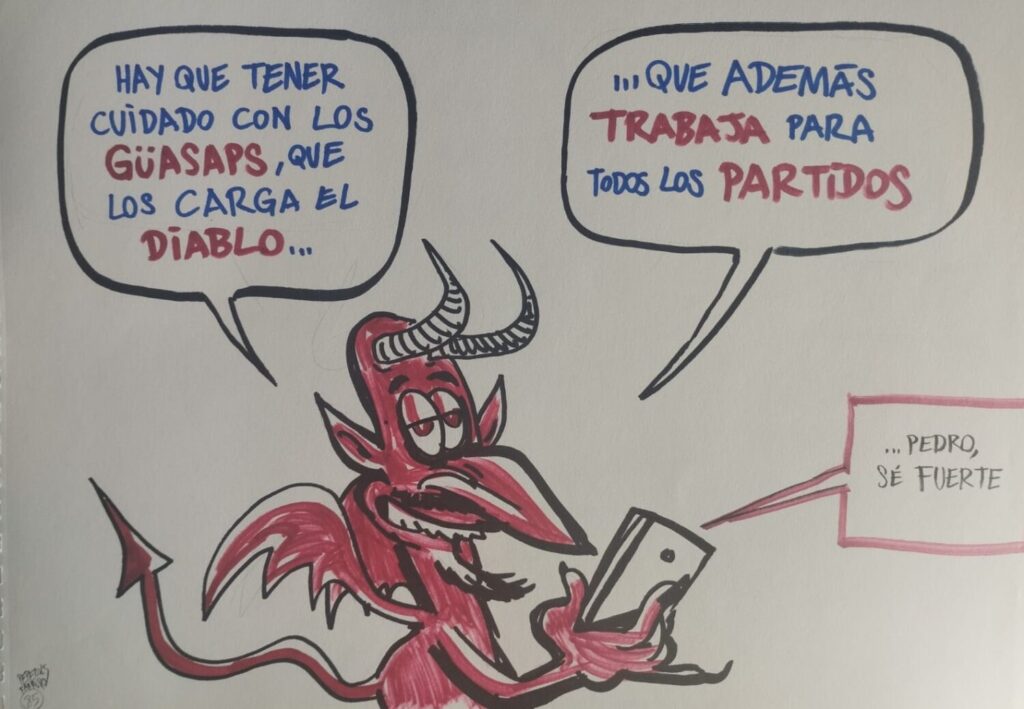 HAY QUE TENER
CUIDADO CON LOS
GÜASAPS, QUE
LOS CARGA EL
DIABLO...
...QUE ADEMÁS
TRABAJA PARA
TODOS LOS PARTIDOS
...PEDRO,
SÉ FUERTE